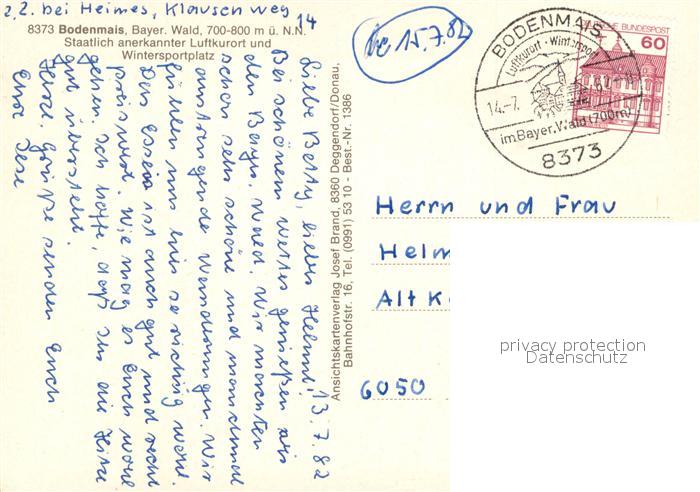 z.Z. bei Heimes, Klausenweg
14
8373 Bodenmais, Bayer. Wald, 700-800 m ü. N.N.
Staatlich anerkannter Luftkurort und
Wintersportplatz
13.7.82
Liebe Betty, lieber Helmut!
Bei schönem Wetter genießen wir
den Bayr. Wald. Wir machten
schon sehr schöne und manchmal
anstrengende Wanderungen. Wir
fühlen uns hier so richtig wohl.
Das Essen ist auch gut und recht
preiswert. Wie mag es Euch wohl
gehen. Ich hoffe, daß Ihr die Hitze
gut übersteht.
Herzl. Grüße senden Euch
Eure
Ansichtskartenverlag Josef Brand, 8360 Deggendorf/Donau,
Bahnhofstr. 16, Tel. (0991) 53 10 - Best.-Nr. 1386
15.7.82
BODENMAIS
Luftkurort · Wintersport
14.-7.
im Bayer. Wald (700m)
8373
DEUTSCHE BUNDESPOST
60
Herrn und Frau
Helm
Alt K
6050
privacy protection
Datenschutz